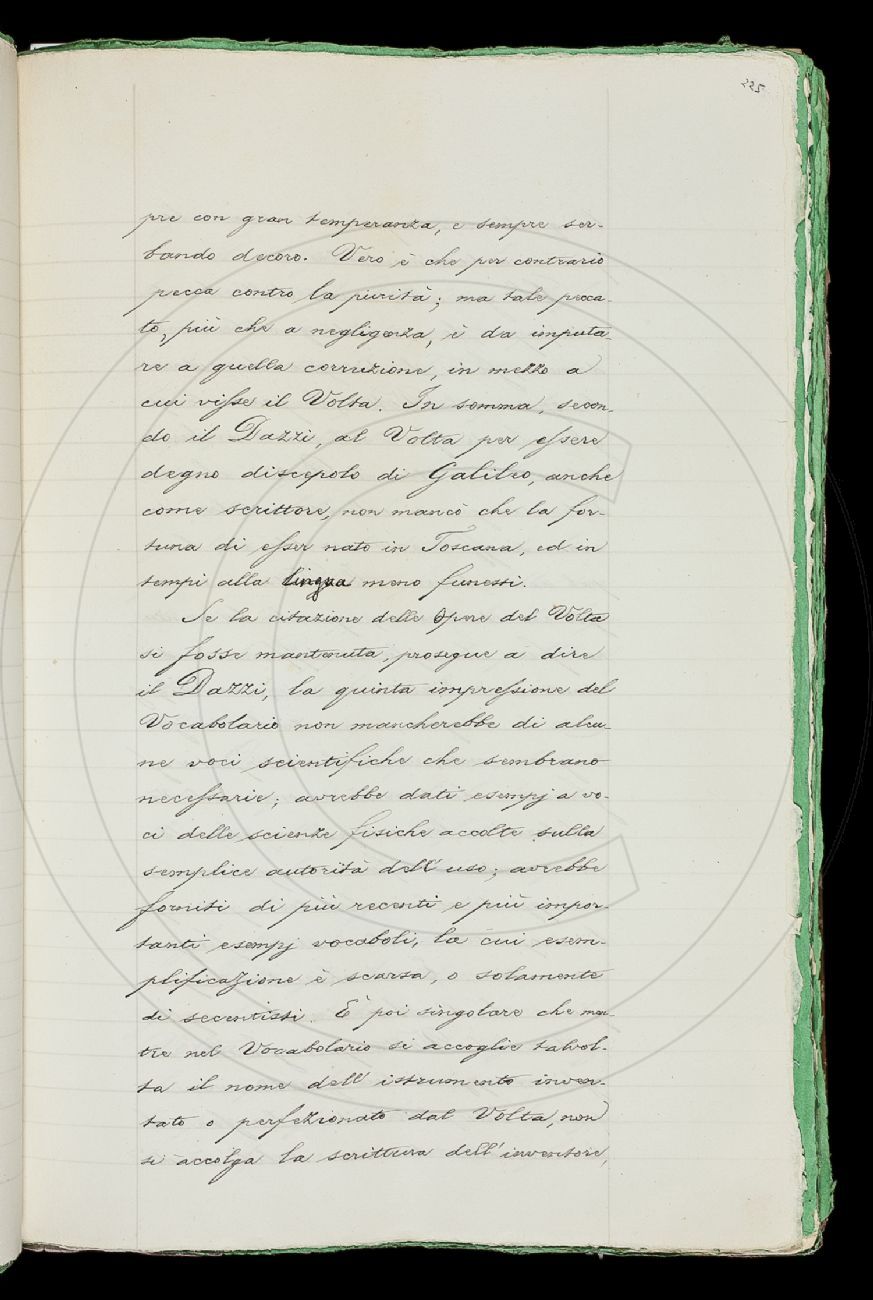 225
pre con gran temperanza, e sempre ser-
bando decoro. Vero è che per contrario
pecca contro la purità; ma tale pecca-
to, più che a negligenza, è da imputa-
re a quella corruzione, in mezzo a
cui visse il Volta. In somma, secon-
do il Dazzi, al Volta per essere
degno discepolo di Galileo, anche
come scrittore, non mancò che la for-
tuna di esser nato in Toscana, ed in
tempi alla lingua meno funesti.
Se la citazione delle Opere del Volta
si fosse mantenuta, prosegue a dire
il Dazzi, la quinta impressione del
Vocabolario non mancherebbe di alcu-
ne voci scientifiche che sembrano
necessarie; avrebbe dati esempj a vo-
ci delle scienze fisiche accolte sulla
semplice autorità dell' uso; avrebbe
forniti di più recenti e più impor-
tanti esempj vocaboli, la cui esem-
plificazione è scarsa, o solamente
di secentisti. È poi singolare che men-
tre nel Vocabolario si accoglie talvol-
ta il nome dell' istrumento inven-
tato o perfezionato dal Volta, non
si accolga la scrittura dell' inventore,